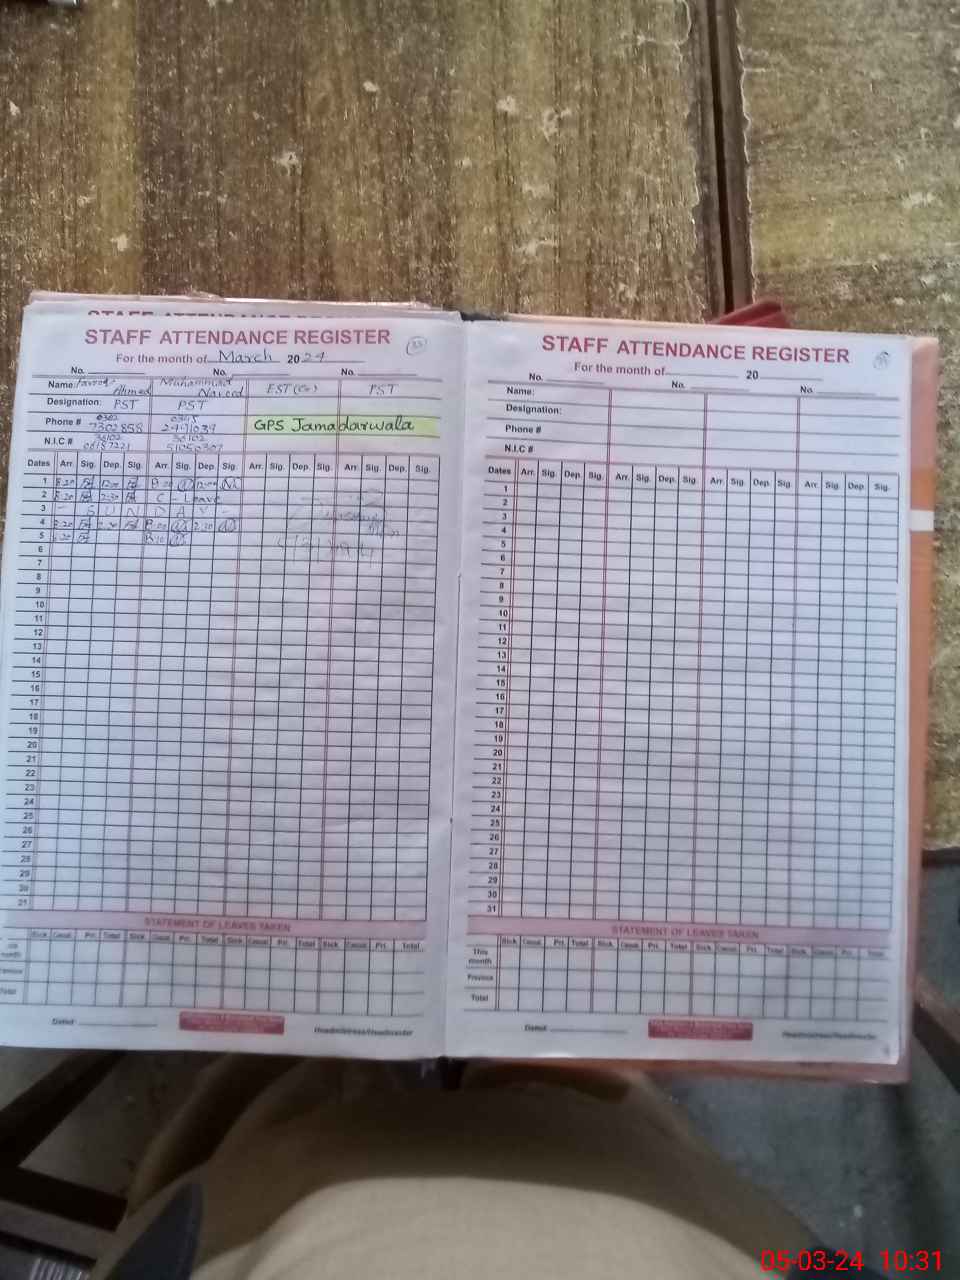 STAFF ATTENDANCE REGISTER
For the month of March 2024
No. No. No.
Name: Ahmed Muhammad Naveed EST(Gr) PST
Designation: PST PST
Phone # 0302 7302858 0345
GPS Jamadarwala
N.I.C # 36102 36102
Dates Arr. Sig. Dep. Sig. Arr. Sig. Dep. Sig. Arr. Sig. Dep. Sig. Arr. Sig. Dep. Sig.
1 8:20 12:00 8:00 12:00
2 8:20 2:30 C - Leave
3 - S U N D A Y -
4 8:20 2:30 8:00 2:30
5 8:20 8:10
6
7
8
9
10
11
12
13
14
15
16
17
18
19
20
21
22
23
24
25
26
27
28
29
30
31
STATEMENT OF LEAVES TAKEN
Sick Casul. Pri. Total Sick Casul. Pri. Total Sick Casul. Pri. Total Sick Casul. Pri. Total
This month
Previous
Total
Dated
Headmistress/Headmaster
STAFF ATTENDANCE REGISTER
For the month of 20
No. No. No.
Name:
Designation:
Phone #
N.I.C #
Dates Arr. Sig. Dep. Sig. Arr. Sig. Dep. Sig. Arr. Sig. Dep. Sig. Arr. Sig. Dep. Sig.
1
2
3
4
5
6
7
8
9
10
11
12
13
14
15
16
17
18
19
20
21
22
23
24
25
26
27
28
29
30
31
STATEMENT OF LEAVES TAKEN
Sick Casul. Pri. Total Sick Casul. Pri. Total Sick Casul. Pri. Total Sick Casul. Pri. Total
This month
Previous
Total
Dated
Headmistress/Headmaster
05-03-24 10:31